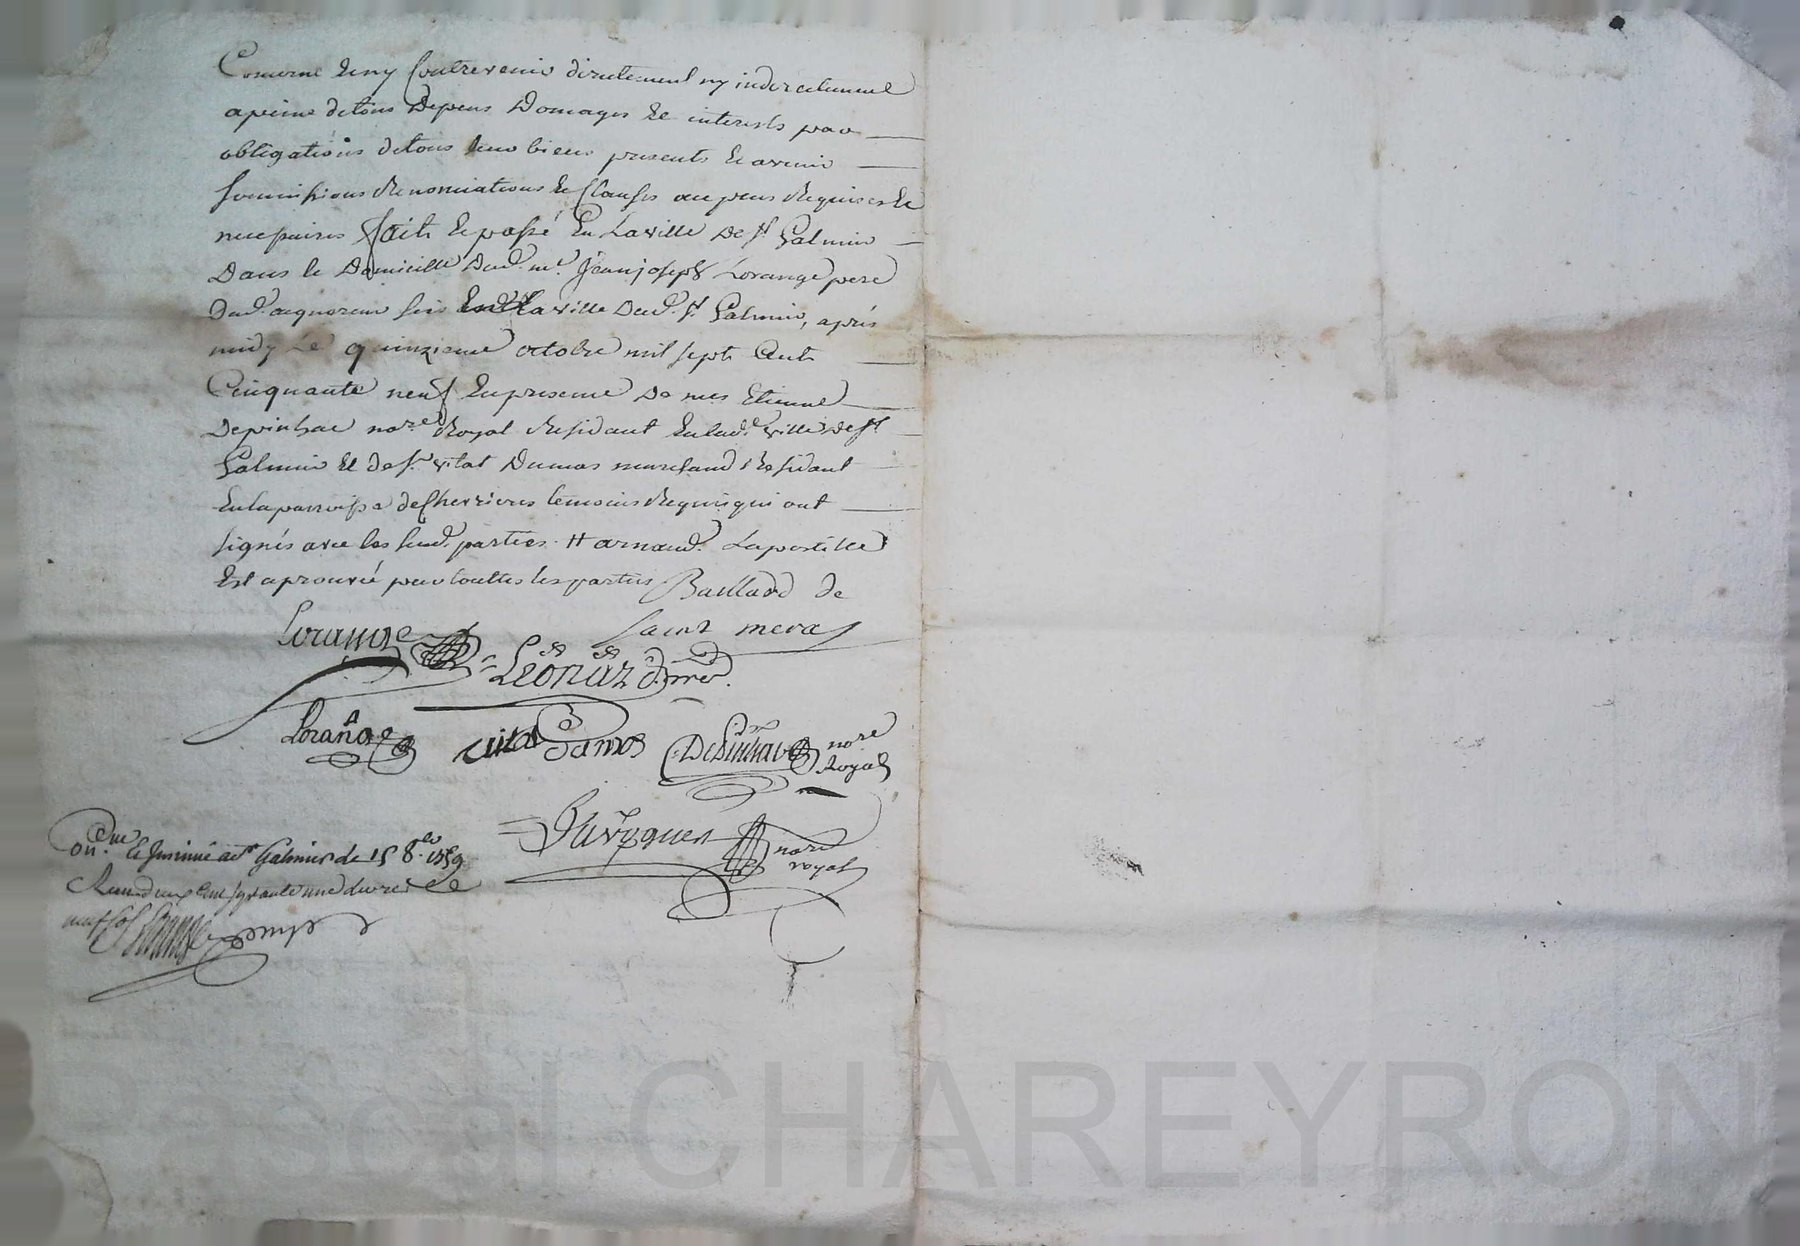 Concerne Et ny Contrevenir directement ny indirectement
a peine de tous Depens Domages Et interests par
obligations de tous leurs biens presents Et avenir
soumissions Renonciations Et Clauses au peus Requises Et
necessaires fait Et passé En La ville De St Galmier
Dans le Domicille Dud. me. Jean joseph Lorange pere
dud. acquereur sis En la ville Dud. St. Galmier, après
midy Le quinzieme octobre mil sept Cent
Cinquante neuf En presence De mes Etienne
Depinhac nore. Royal Residant En lad. ville de St
Galmier Et de sr. vital Dumas marchand Residant
En la parroisse de Chevrieres temoins Requis qui ont
signés avec les susd. parties. Lapostille
Est aprouvée par touttes les parties Baillard de
Lorange saint
Leonard
Lorange vital Damas Depinhac nore
Royal
nore
royal
Con.lé Et Insinué a St Galmier le 15 8.bre 1759
Reçu deux Cent soixante une Livres
neuf sols
Pascal CHAREYRON